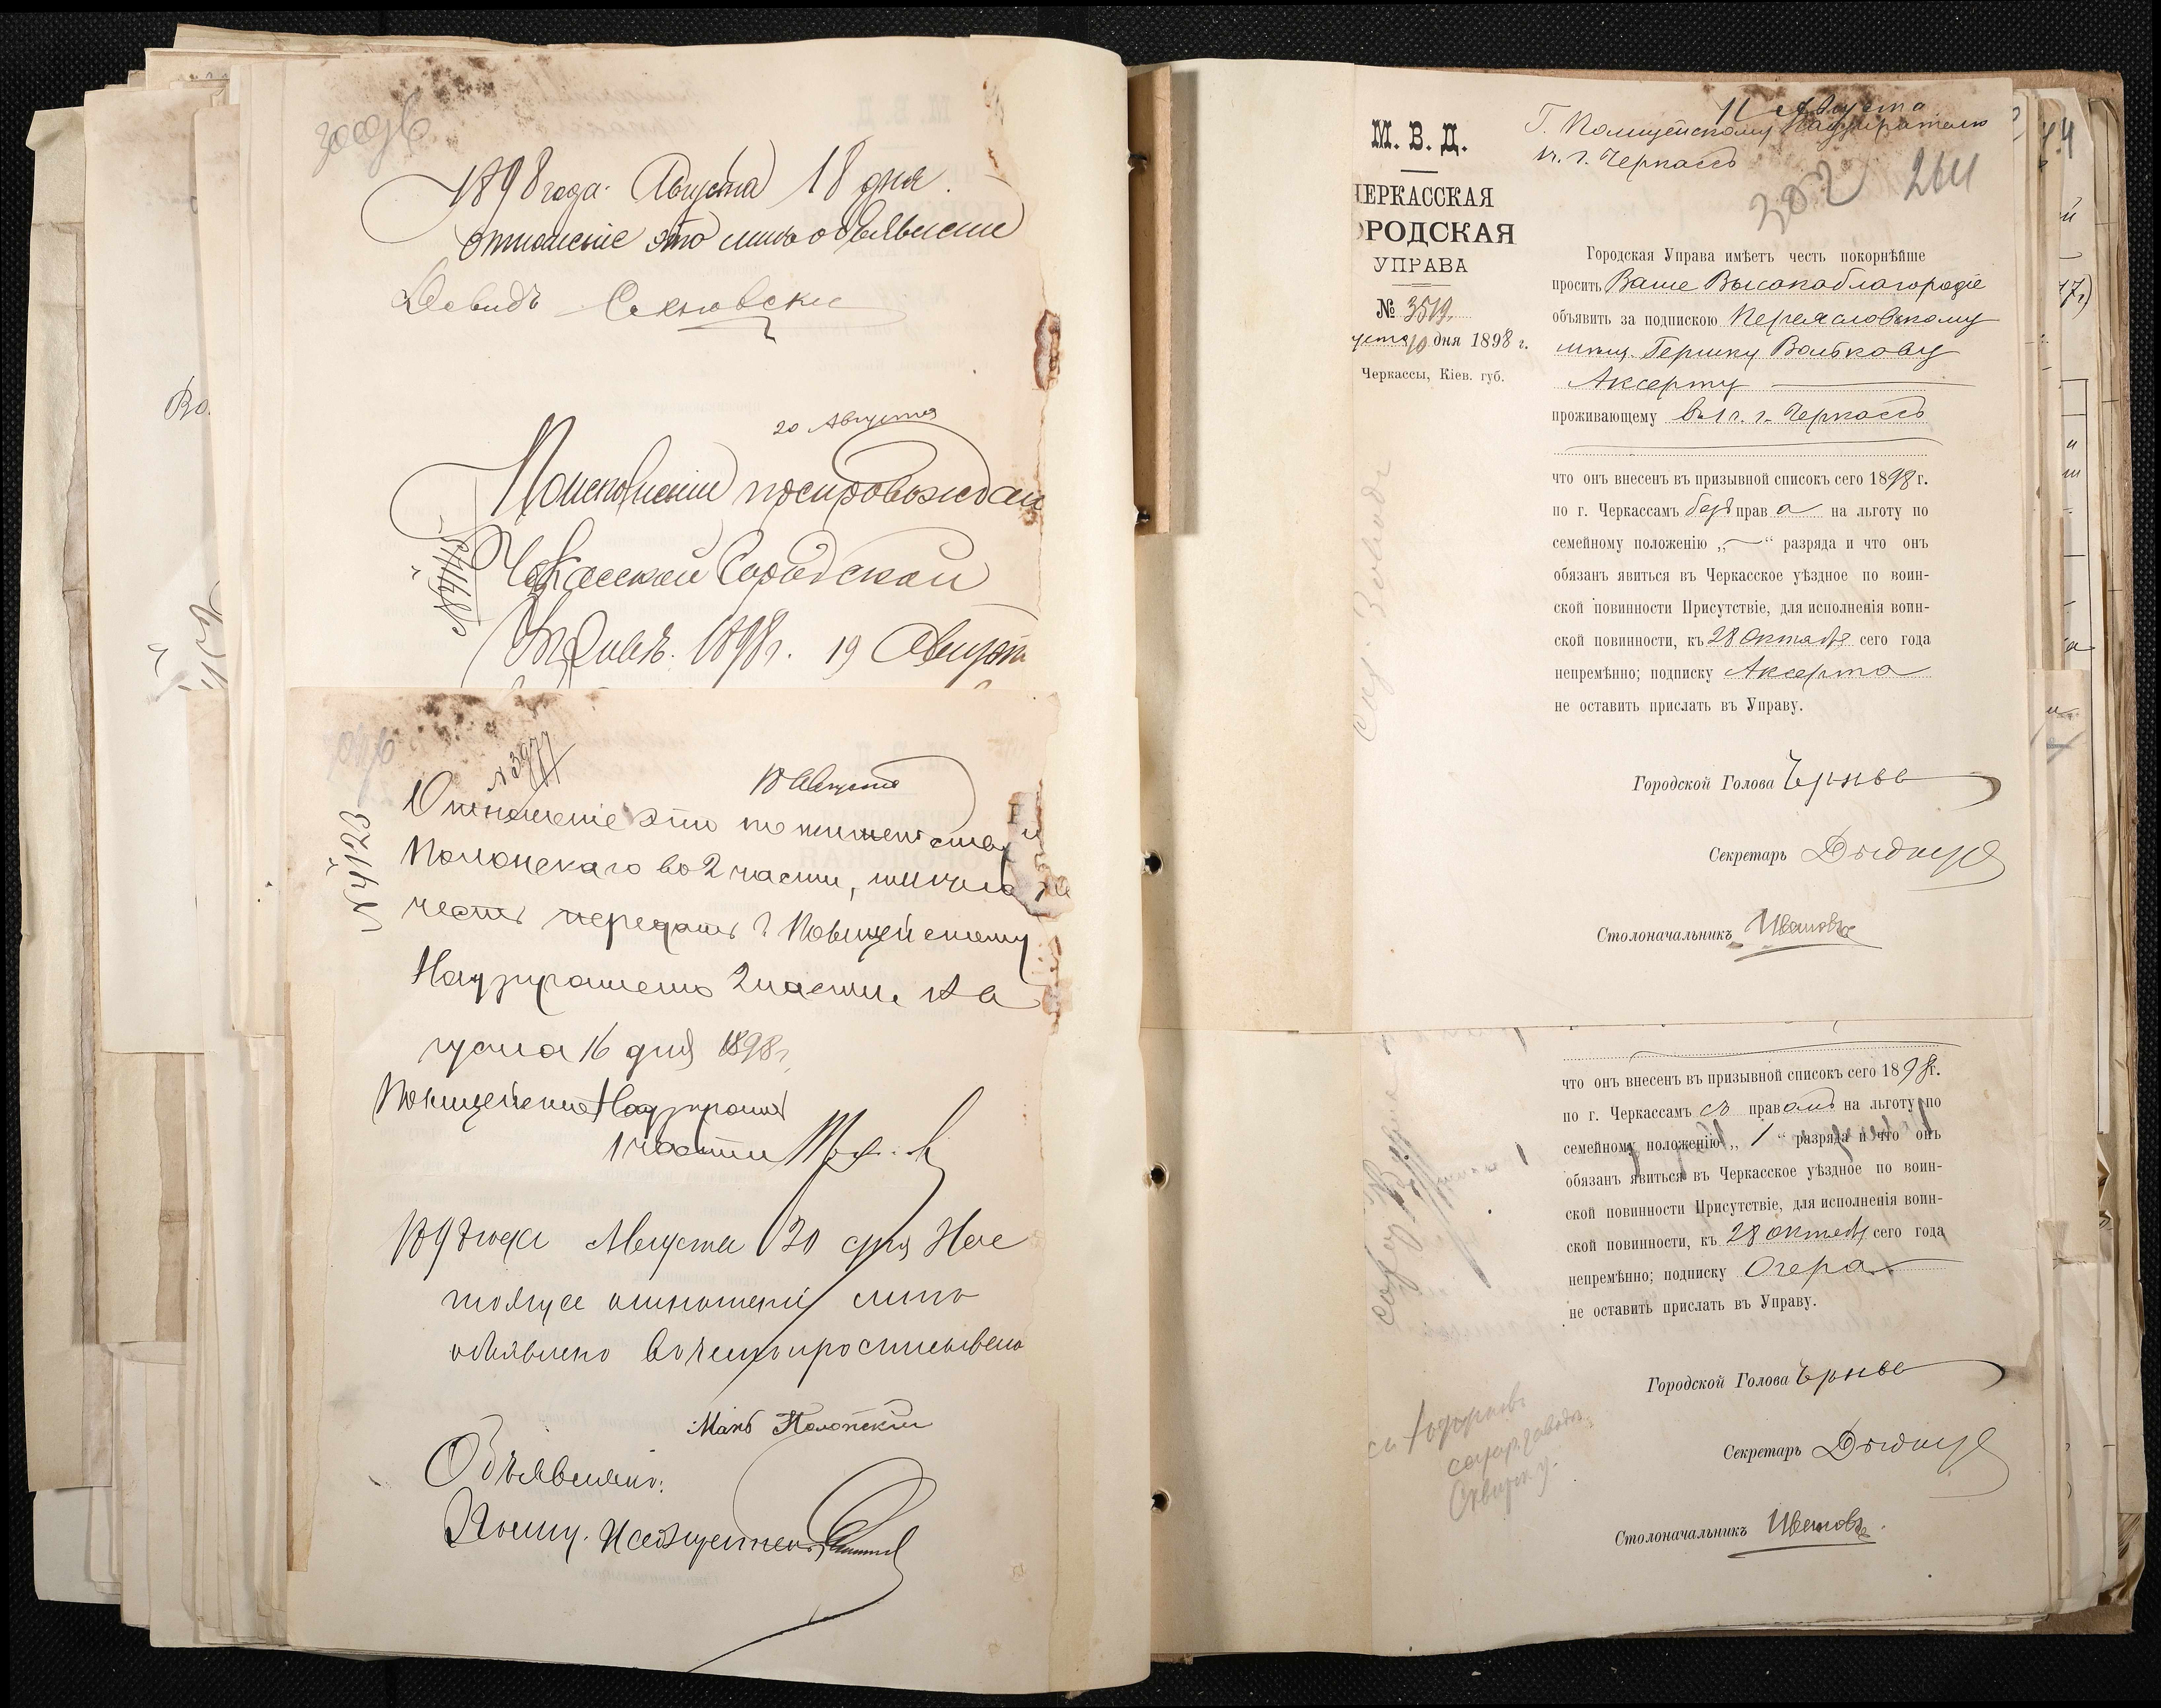 1898 года Августа 18 дня
отношение это мне объявлено
Довидъ
20 Августа
По исполнении препровождаю
Черкасской Городской
Управѣ. 1898 г. 19 Августа
№ 3977
18 Августа
№ 4123
Отношеніе это по жительству
Полонскаго во 2 части, имѣю
честь передать Г. Полицейскому
Надзирателю 2 части. Ав
густа 16 дня 1898 г.
Полицейскій Надзиратель
1 части
1898 года Августа 20 дня Нас
тоящее отношеніе мнѣ
объявлено въ чемъ и росписываюсь
Полонскій
Объявлялъ:
11 Августа
Г. Полицейскому Надзирателю
1 ч. г. Черкассъ
302 264
М. В. Д.
ЧЕРКАССКАЯ
ОРОДСКАЯ
УПРАВА
№ 3519.
густа 10 дня 1898 г.
Черкассы, Кіев. губ.
Городская Управа имѣетъ честь покорнѣйше
просить Ваше Высокоблагородіе
объявить за подпискою Переяславскому
мѣщ. Гершку Волькову
Аксерту
проживающему в 1 ч. г. Черкассъ
что онъ внесенъ въ призывной списокъ сего 1898 г.
по г. Черкассамъ безъ права на льготу по
семейному положенію „—“ разряда и что онъ
обязанъ явиться въ Черкасское уѣздное по воин-
ской повинности Присутствіе, для исполненія воин-
ской повинности, къ 28 Октября сего года
непремѣнно; подписку Аксерта
не оставить прислать въ Управу.
Городской Голова
Секретарь
Столоначальникъ Ивановъ
что онъ внесенъ въ призывной списокъ сего 1898 г.
по г. Черкассамъ съ правомъ на льготу по
семейному положенію „1“ разряда и что онъ
обязанъ явиться въ Черкасское уѣздное по воин-
ской повинности Присутствіе, для исполненія воин-
ской повинности, къ 28 Октября сего года
непремѣнно; подписку Очера
не оставить прислать въ Управу.
Городской Голова
Секретарь
Столоначальникъ Ивановъ